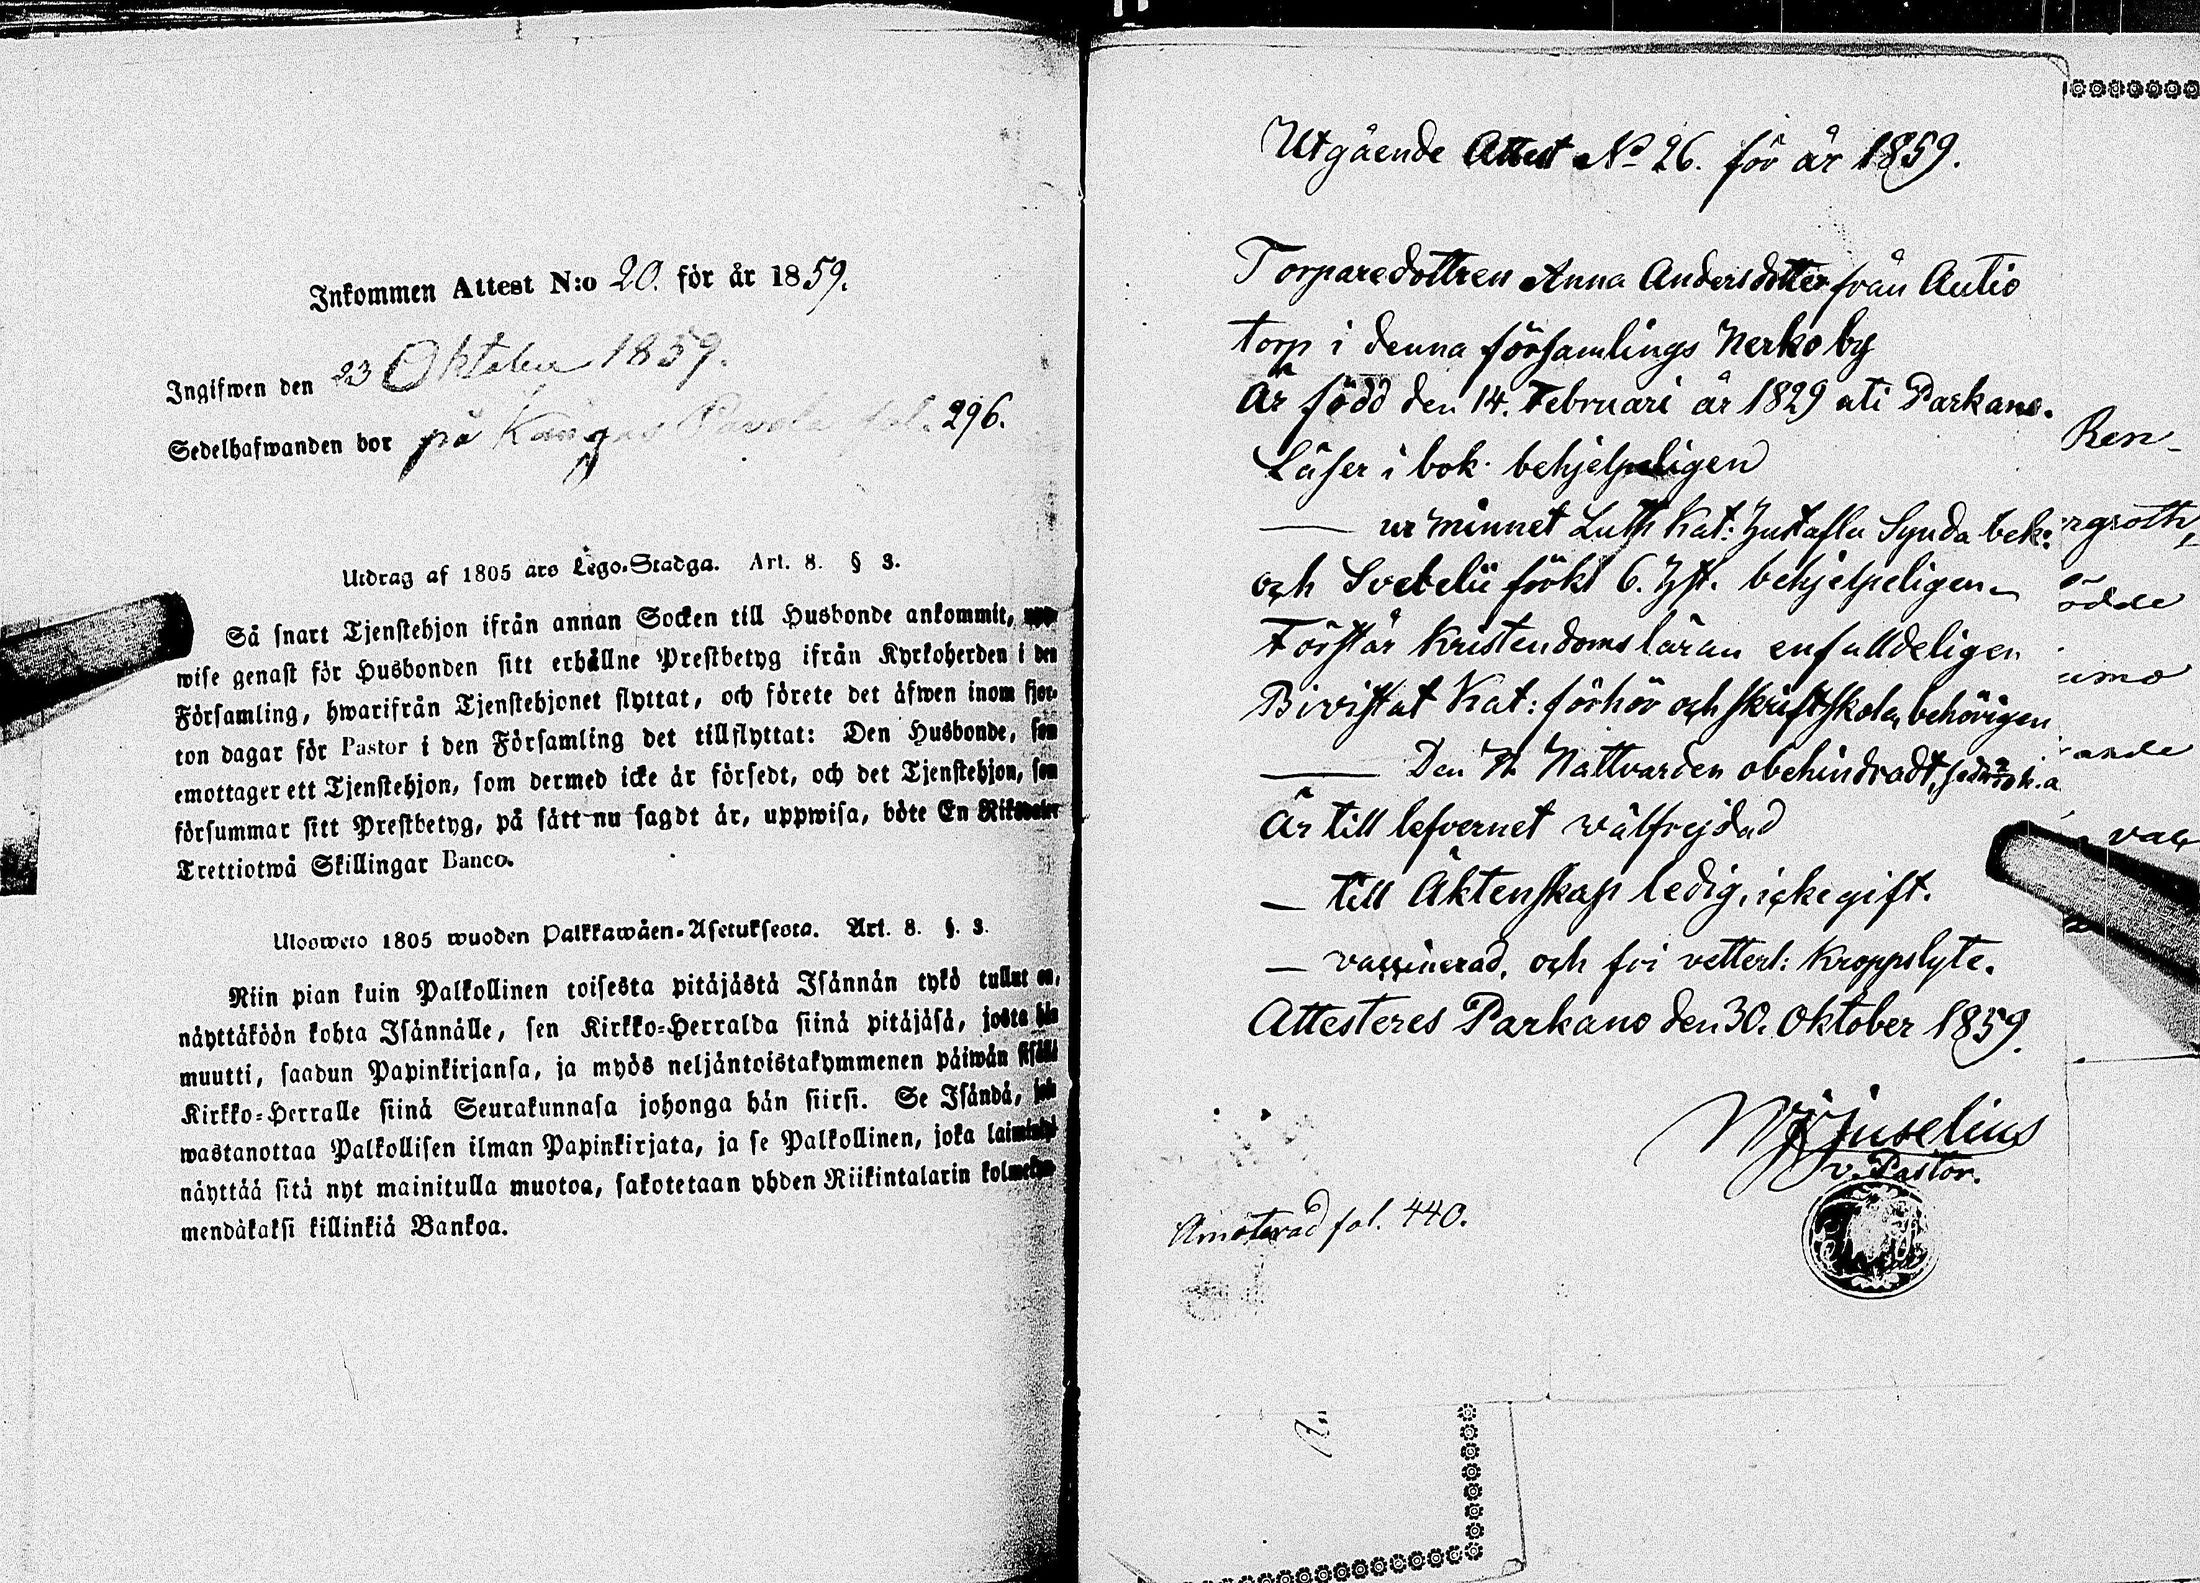 Inkommen Attest N:o 20. för år 1859.
Ingifwen den 23 Oktober 1859.
Sedelhafwanden bor på Kangas Pavola fol. 296.
Utdrag af 1805 års Lego-Stadga. Art. 8. § 3.
Så snart Tjenstehjon ifrån annan Socken till Husbonde ankommit, upp-
wise genast för Husbonden sitt erhållne Prestbetyg ifrån Kyrkoherden i den
Församling, hwarifrån Tjenstehjonet flyttat, och förete det äfwen inom fjor-
ton dagar för Pastor i den Församling det tillflyttat: Den Husbonde, som
emottager ett Tjenstehjon, som dermed icke är försedt, och det Tjenstehjon, som
försummar sitt Prestbetyg, på sätt nu sagdt är, uppwisa, böte En Riksdaler
Trettiotwå Skillingar Banco.
Ulosweto 1805 wuoden Palkkawäen-Asetuksesta. Art. 8. §. 3.
Niin pian kuin Palkollinen toisesta pitäjästä Isännän tykö tullut on,
näyttäköön kohta Isännälle, sen Kirkko-Herralda siinä pitäjäsä, josta hän
muutti, saadun Papinkirjansa, ja myös neljäntoistakymmenen päiwän sisällä
Kirkko-Herralle siinä Seurakunnasa johonga hän siirsi. Se Isändä, joh
wastanottaa Palkollisen ilman Papinkirjata, ja se Palkollinen, joka laiminlyö
näyttää sitä nyt mainitulla muotoa, sakotetaan yhden Riikintalarin kolmekym-
mendäkaksi killinkiä Bankoa.
Utgående Attest No 26. för år 1859.
Torparedottren Anna Andersdotter från Autio
torp i denna församlings Nerko by
Är född den 14. Februari år 1829 uti Parkano.
Läser i bok behjelpeligen
— ur minnet Luth Kat: Hustafla Synda bek:
och Svebelii förkl 6. Hst. behjelpeligen
Förstår Kristendomsläran enfalldeligen
Bivistat Kat: förhör och skriftskola, behörigen
— Den H. Nattvarden obehindradt,
Är till lefvernet wälfrejdad
— till Äktenskap ledig, icke gift.
— vaccinerad, och fri vettert: Kroppslyte.
Attesteres Parkano den 30. Oktober 1859.
Juselius
v. Pastor.
Amoterad fol. 440.
Ren-
rgroth,
ödde
umo
ande
vac